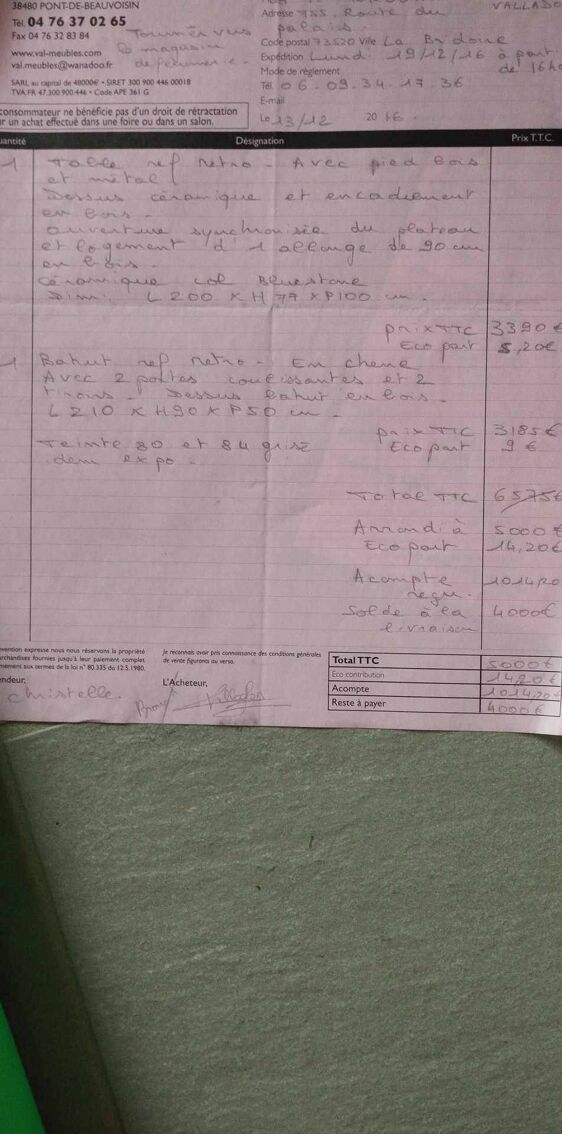 38480 PONT-DE-BEAUVOISIN
Tél. 04 76 37 02 65
Fax 04 76 32 83 84
www.val-meubles.com
val.meubles@wanadoo.fr
SARL au capital de 48000€ • SIRET 300 900 446 00018
TVA FR 47 300 900 446 • Code APE 361 G
Tourner vers
le magasin
de
consommateur ne bénéficie pas d'un droit de rétractation
ur un achat effectué dans une foire ou dans un salon.
VALLADO
Adresse 755, Route du
palais
Code postal 73520 Ville La Bridoire
Expédition Lundi 19/12/16 à part.
de 16h
Mode de règlement
Tél. 06.09.34.17.36
E-mail
Le 13/12 2016.
uantité Désignation Prix T.T.C.
1 Table ref Metro - Avec pied bois
et métal
Dessus céramique et encadrement
en bois -
ouverture synchronisée du plateau
et logement d'1 allonge de 90 cm
en bois
céramique col Bluestone
Dim: L200 x H77 x P100 cm.
prix TTC 3390€
Eco part 5,20€
1 Bahut ref Metro - En chene
Avec 2 portes coulissantes et 2
tiroirs - Dessus bahut en bois.
L210 x H90 x P50 cm.
prix TTC 3185€
Teinte 80 et 84 grisé Eco part 9€
idem expo -
Total TTC 6575€
Arrondi à 5000€
Eco part 14,20€
Acompte 1014,20
reçu.
Solde à la 4000€
livraison
vention expresse nous nous réservons la propriété
archandises fournies jusqu'à leur paiement complet
mément aux termes de la loi n° 80.335 du 12.5.1980.
Je reconnais avoir pris connaissance des conditions générales
de vente figurant au verso.
endeur, L'Acheteur,
Christelle.
Total TTC 5000€
Eco contribution 14,20€
Acompte 1014,20€
Reste à payer 4000€